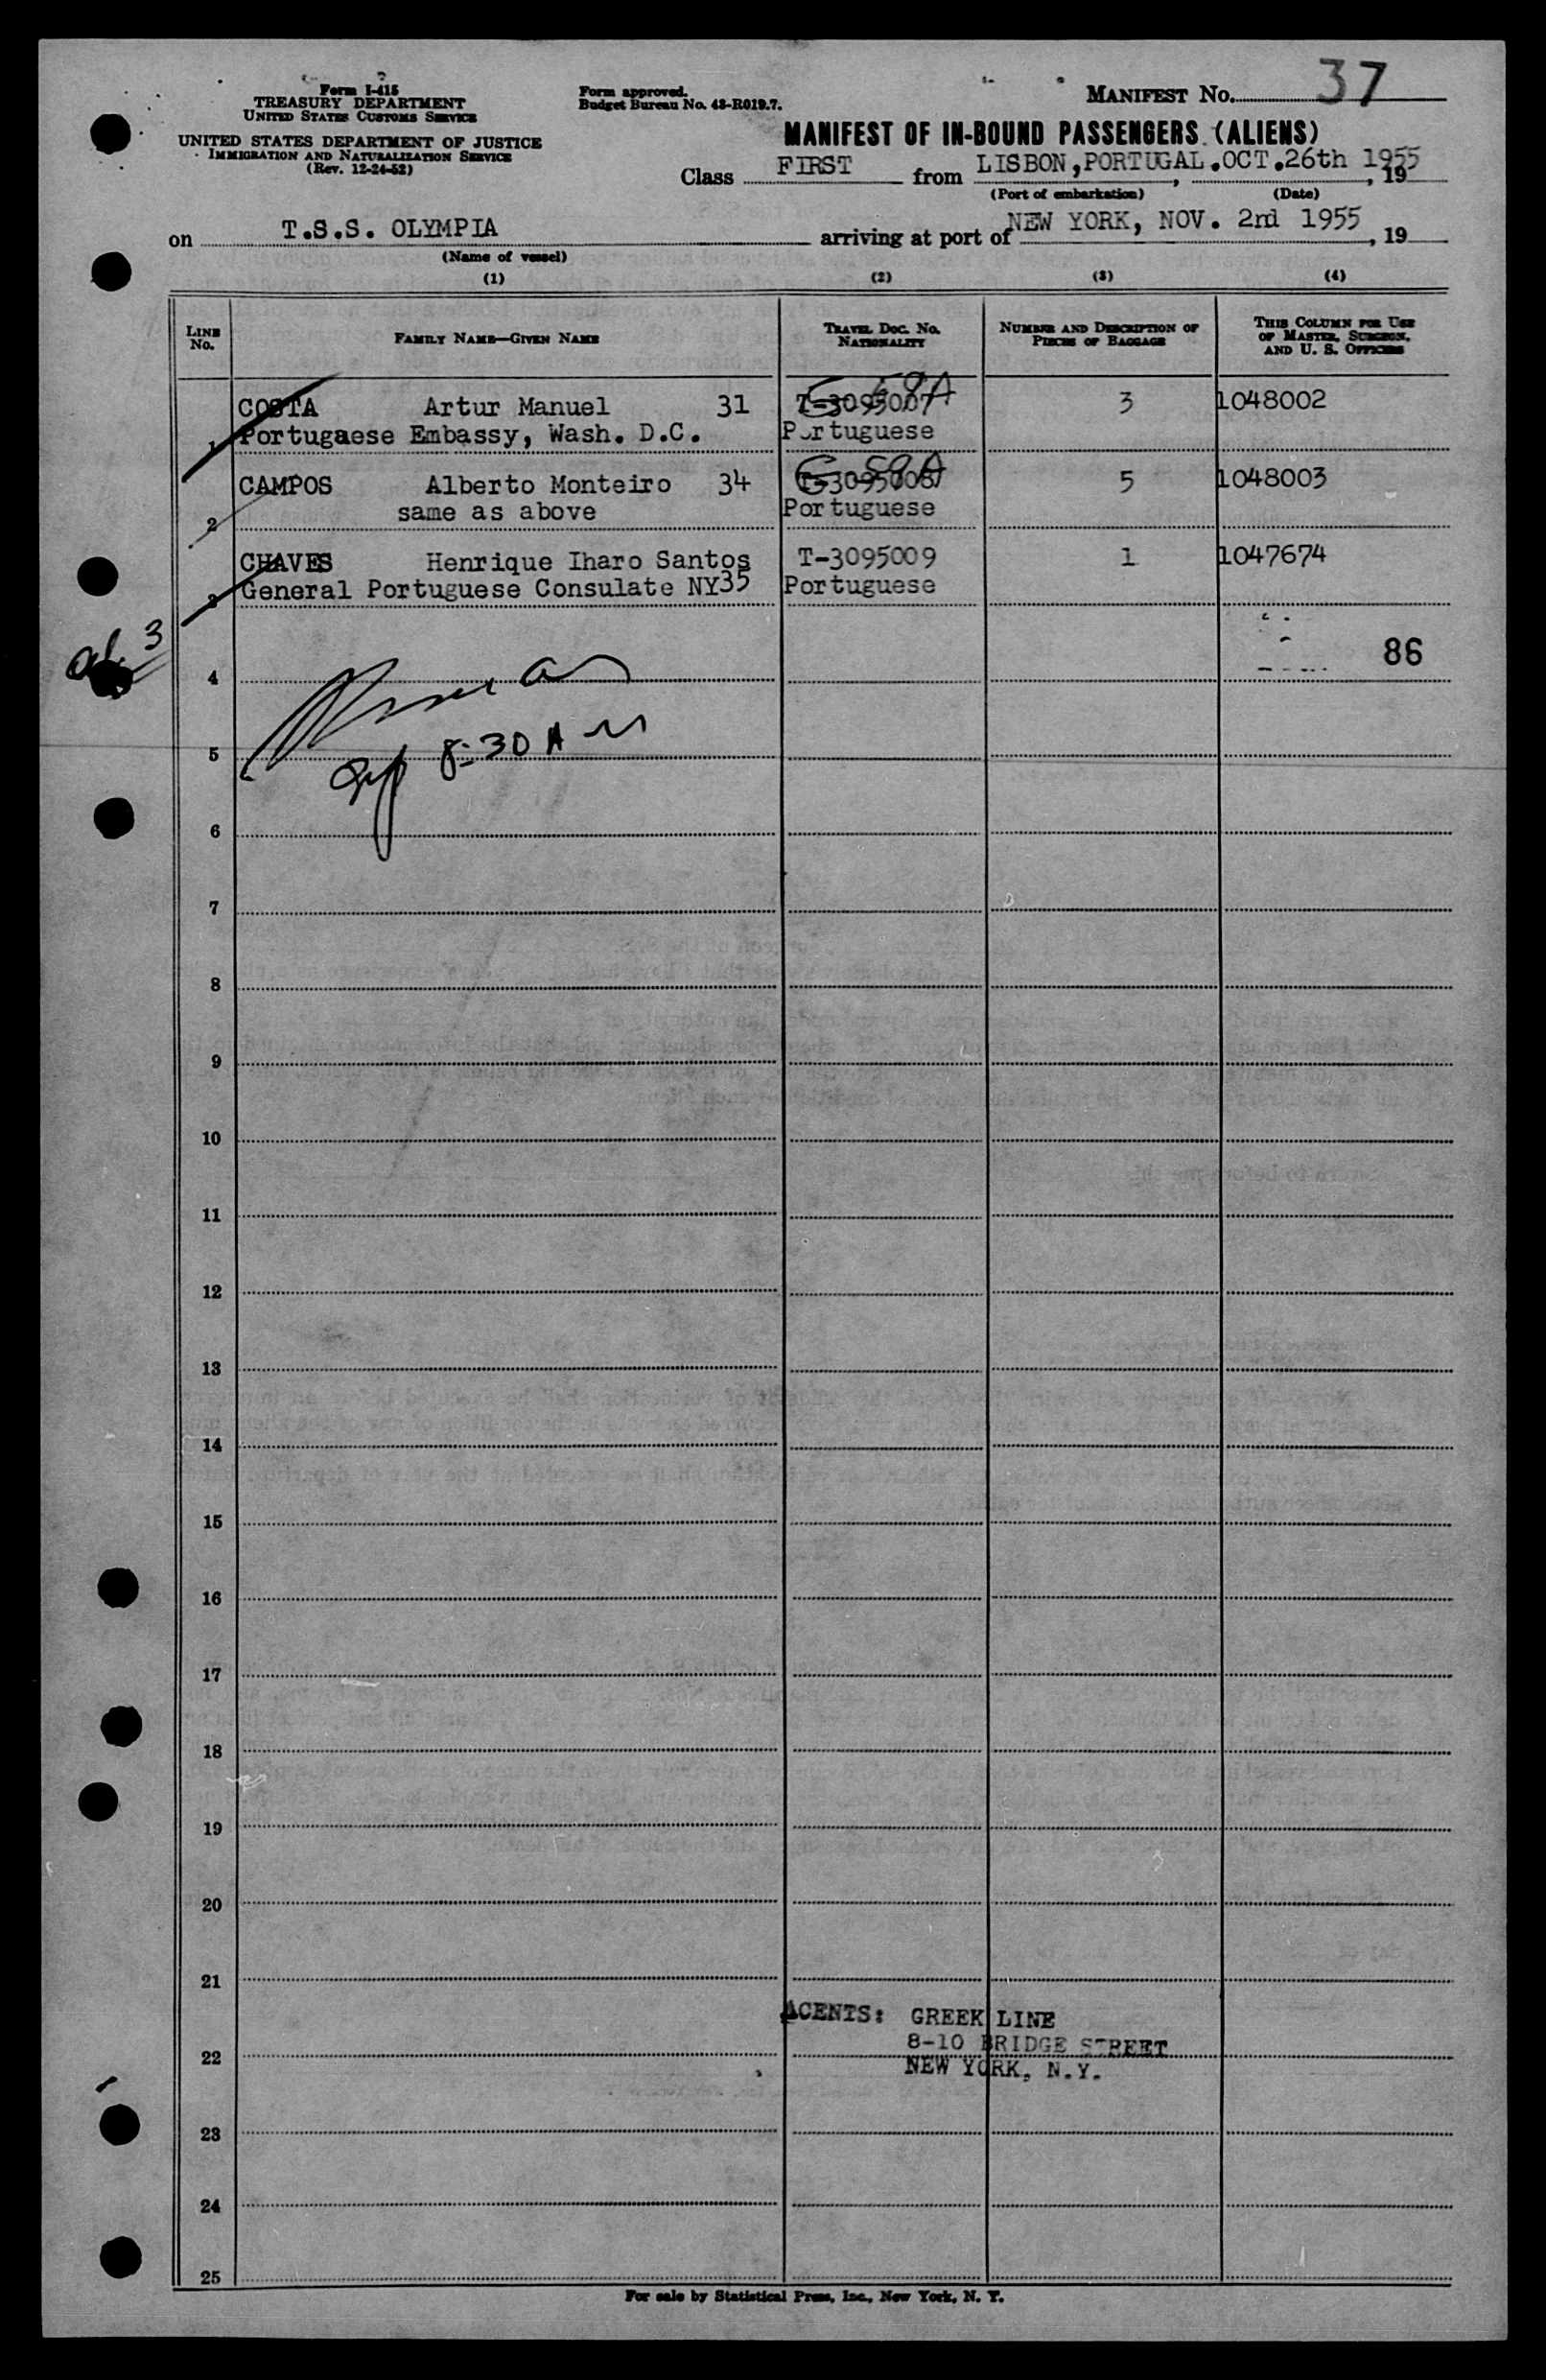 Form I-415
TREASURY DEPARTMENT
UNITED STATES CUSTOMS SERVICE
UNITED STATES DEPARTMENT OF JUSTICE
IMMIGRATION AND NATURALIZATION SERVICE
(Rev. 12-24-52)
Form approved.
Budget Bureau No. 43-R019.7.
MANIFEST NO. 37
MANIFEST OF IN-BOUND PASSENGERS (ALIENS)
Class FIRST from LISBON,PORTUGAL.OCT.26th 1955, 19
(Port of embarkation) (Date)
on T.S.S. OLYMPIA arriving at port of NEW YORK, NOV. 2nd 1955, 19
(Name of vessel)
(1) (2) (3) (4)
LINE NO. FAMILY NAME—GIVEN NAME TRAVEL DOC. NO. NATIONALITY NUMBER AND DESCRIPTION OF PIECES OF BAGGAGE THIS COLUMN FOR USE OF MASTER, SURGEON, AND U. S. OFFICERS
COSTA Artur Manuel 31 T-3095007 3 1048002
1 Portugaese Embassy, Wash. D.C. Portuguese
CAMPOS Alberto Monteiro 34 T-3095008 5 1048003
2 same as above Portuguese
CHAVES Henrique Iharo Santos T-3095009 1 1047674
3 General Portuguese Consulate NY35 Portuguese
3
86
4
8:30 AM
5
6
7
8
9
10
11
12
13
14
15
16
17
18
19
20
21
AGENTS: GREEK LINE
8-10 BRIDGE STREET
22
NEW YORK, N.Y.
23
24
25
For sale by Statistical Press, Inc., New York, N. Y.